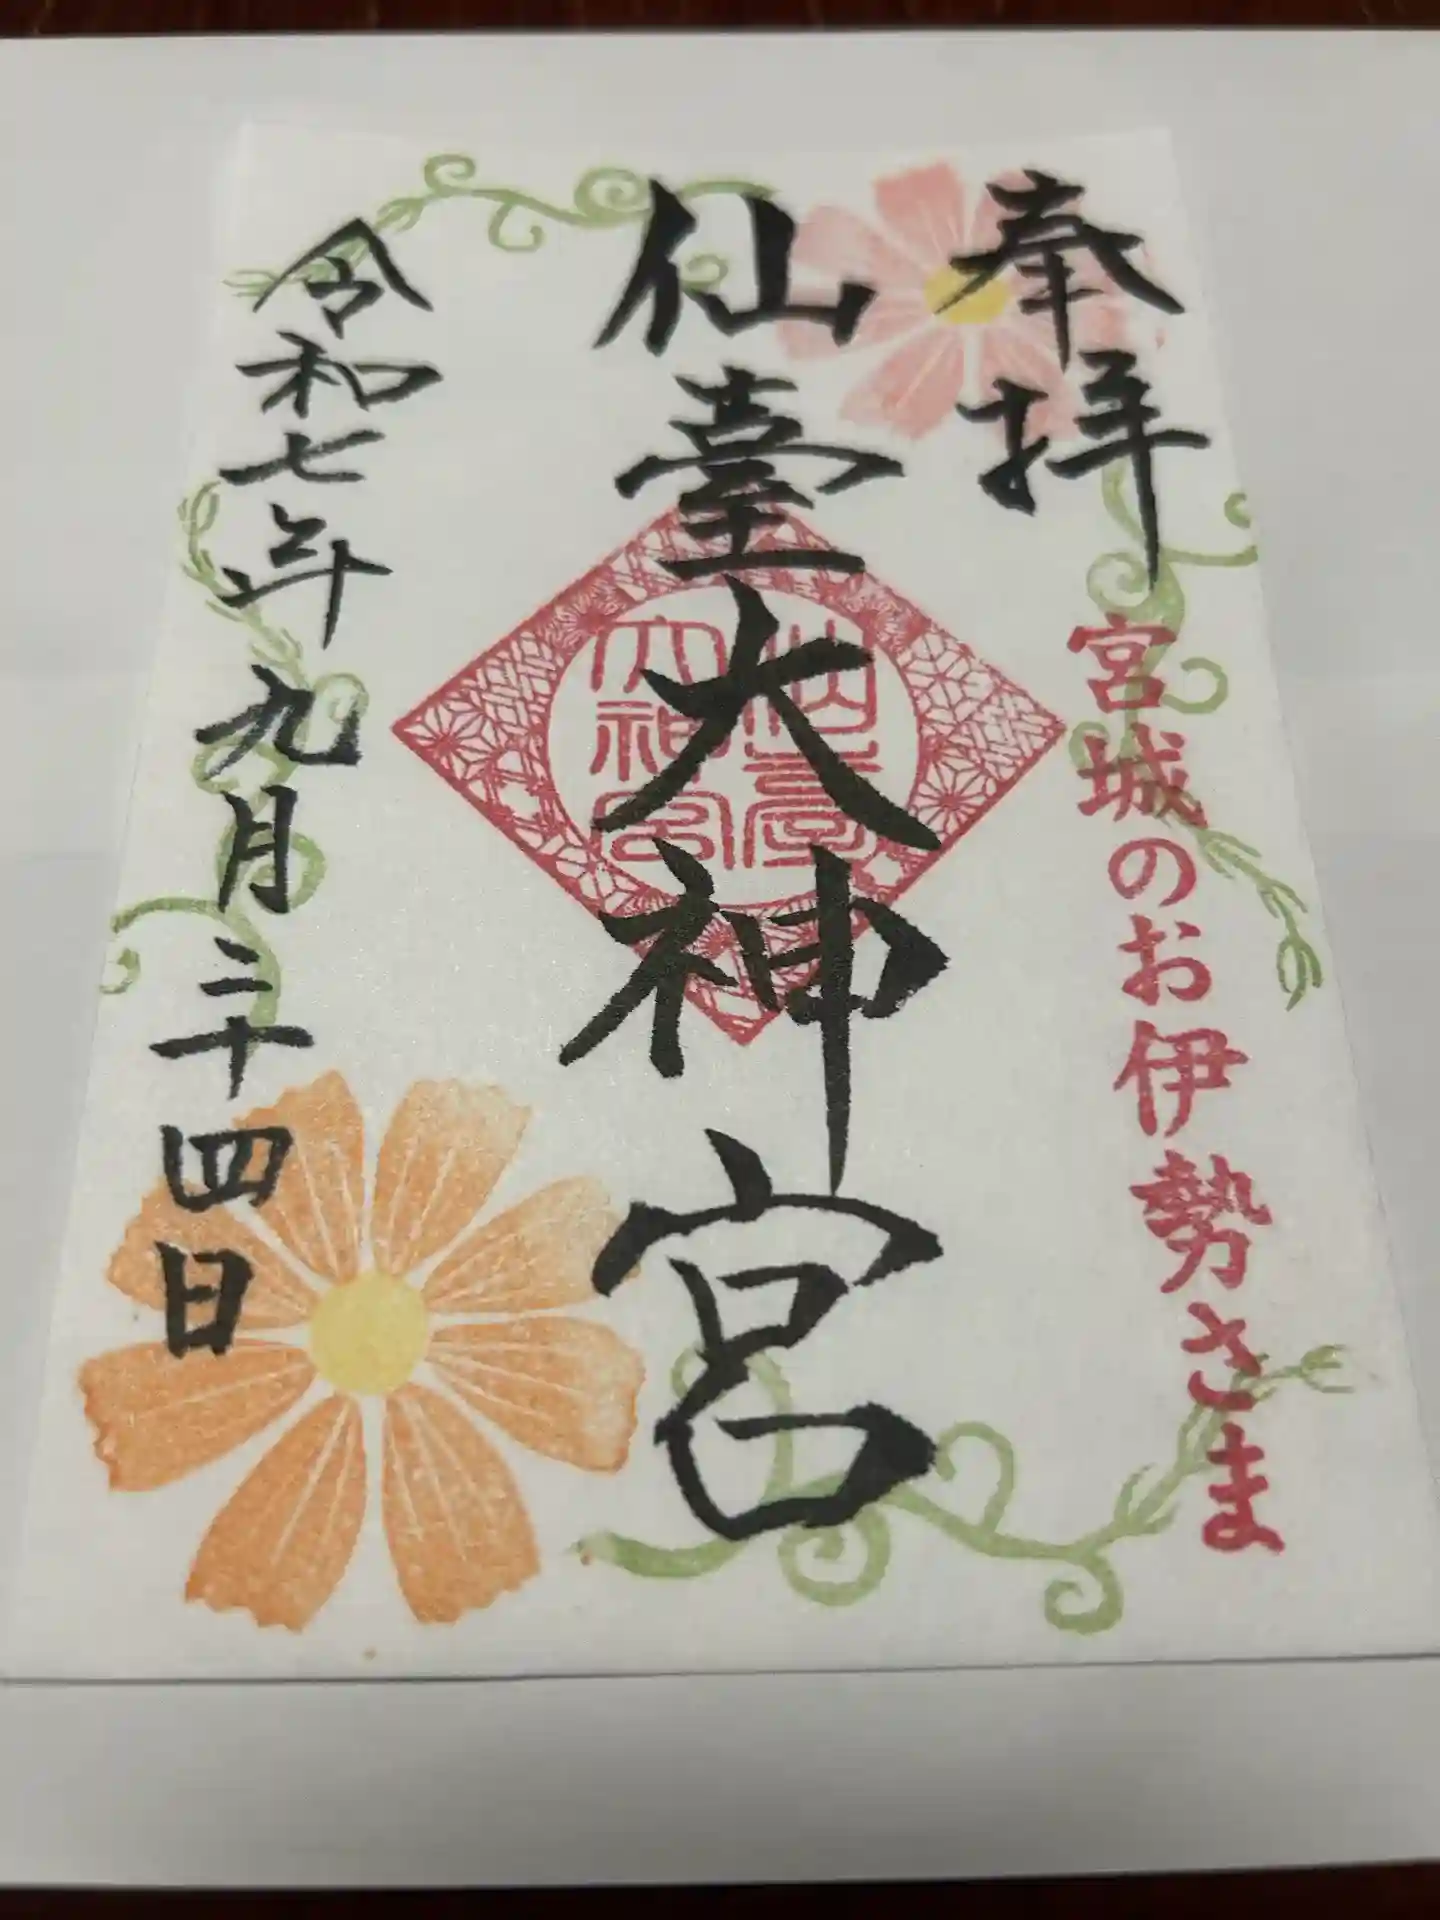 奉拝
宮城のお伊勢さま
仙臺大神宮
仙臺
大神宮
令和七年九月二十四日